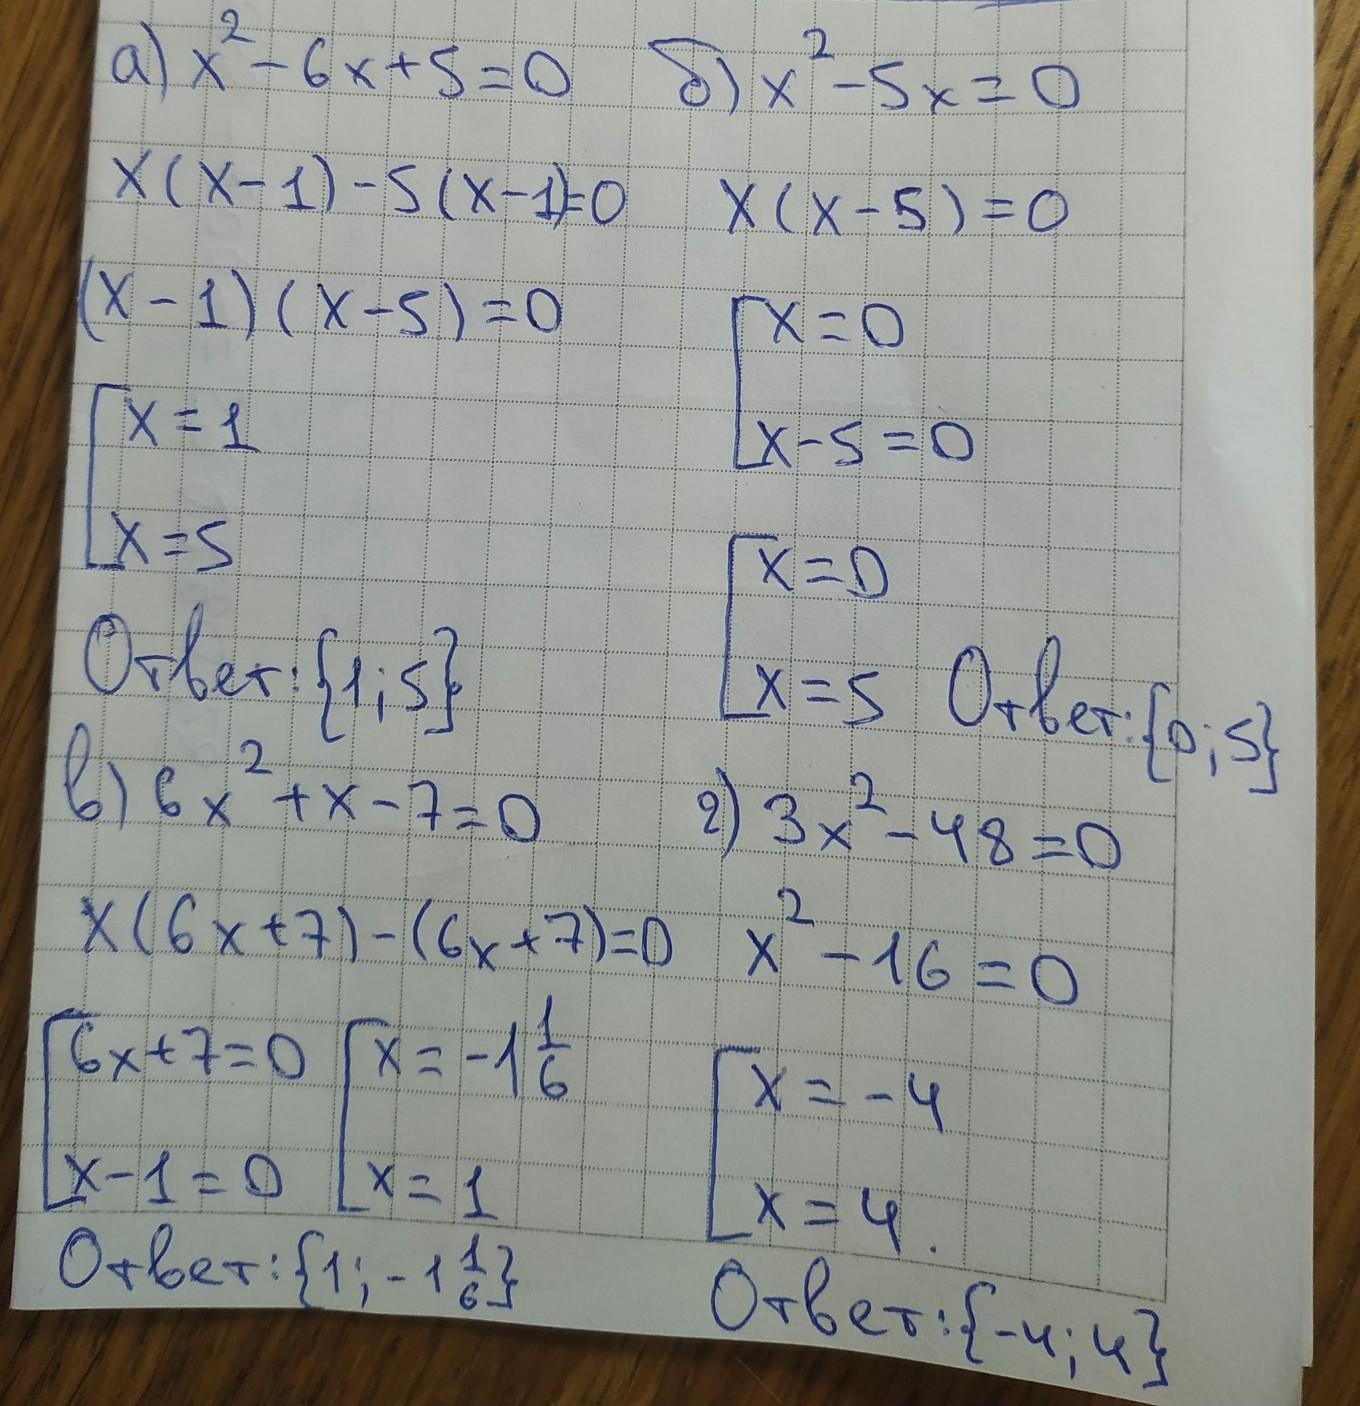 а) x² - 6x + 5 = 0
x(x - 1) - 5(x - 1) = 0
(x - 1)(x - 5) = 0
[x = 1
x = 5
Ответ: {1; 5}
б) x² - 5x = 0
x(x - 5) = 0
[x = 0
x - 5 = 0
[x = 0
x = 5 Ответ: {0; 5}
в) 6x² + x - 7 = 0
x(6x + 7) - (6x + 7) = 0
[6x + 7 = 0 [x = -1 1/6
x - 1 = 0 x = 1
Ответ: {1; -1 1/6}
г) 3x² - 48 = 0
x² - 16 = 0
[x = -4
x = 4.
Ответ: {-4; 4}